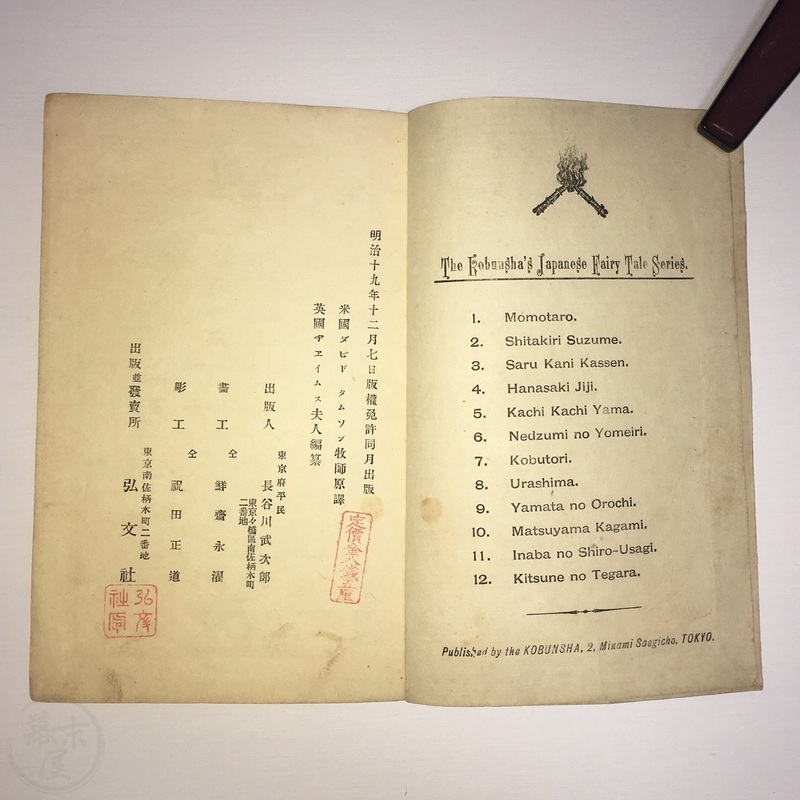 明治十九年十二月七日版權免許同月出版
米國ダビド タムソン牧師原譯
英國ヂエイムス夫人編纂
定價金八錢五厘
東京府平民
出版人 長谷川武次郎
東京々橋區南佐柄木町
二番地
畫工 仝 鮮齋永濯
彫工 仝 祝田正道
東京南佐柄木町二番地
出版並發賣所 弘文社
The Kobunsha's Japanese Fairy Tale Series.
1. Momotaro.
2. Shitakiri Suzume.
3. Saru Kani Kassen.
4. Hanasaki Jiji.
5. Kachi Kachi Yama.
6. Nedzumi no Yomeiri.
7. Kobutori.
8. Urashima.
9. Yamata no Orochi.
10. Matsuyama Kagami.
11. Inaba no Shiro-Usagi.
12. Kitsune no Tegara.
Published by the KOBUNSHA, 2, Minami Saegicho, TOKYO.
幕末屋